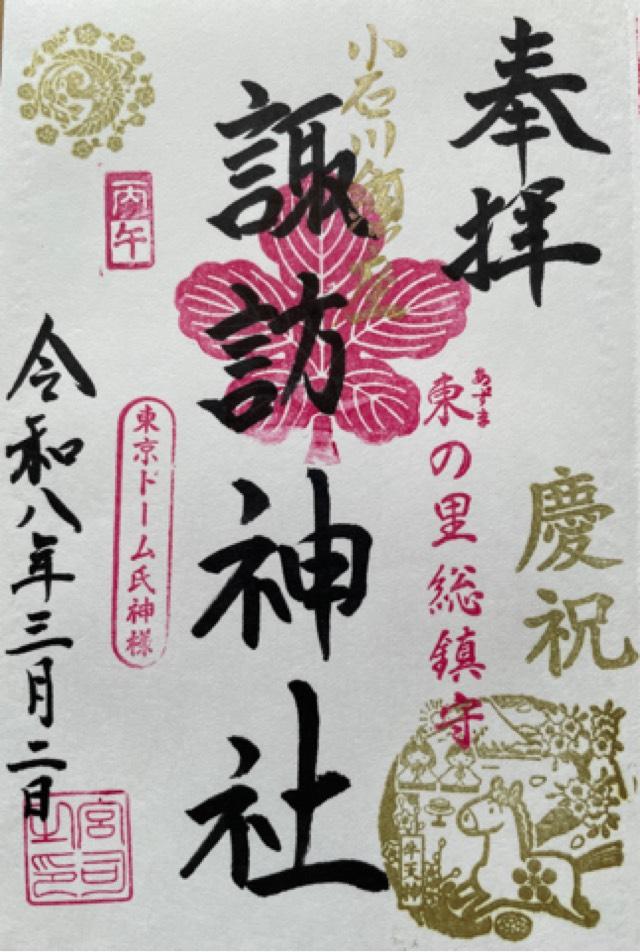 奉拝
慶祝
小石川鎮座
東の里総鎮守
あずま
諏訪神社
丙午
東京ドーム氏神様
令和八年三月二日
宮司之印
牛天神